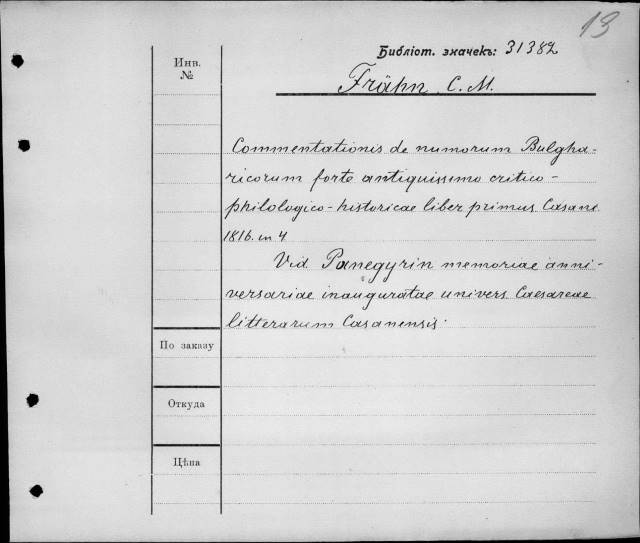 13
Библіот. значекъ: 31382
Инв. №
Frähn C. M.
Commentationis de numorum Bulgha-
ricorum forte antiquissimo critico-
philologico-historicae liber primus Casani
1816. in 4.
Vid Panegyrin memoriae anni-
versariae inauguratae univers Caesareae
litterarum Casanensis.
По заказу
Откуда
Цѣна